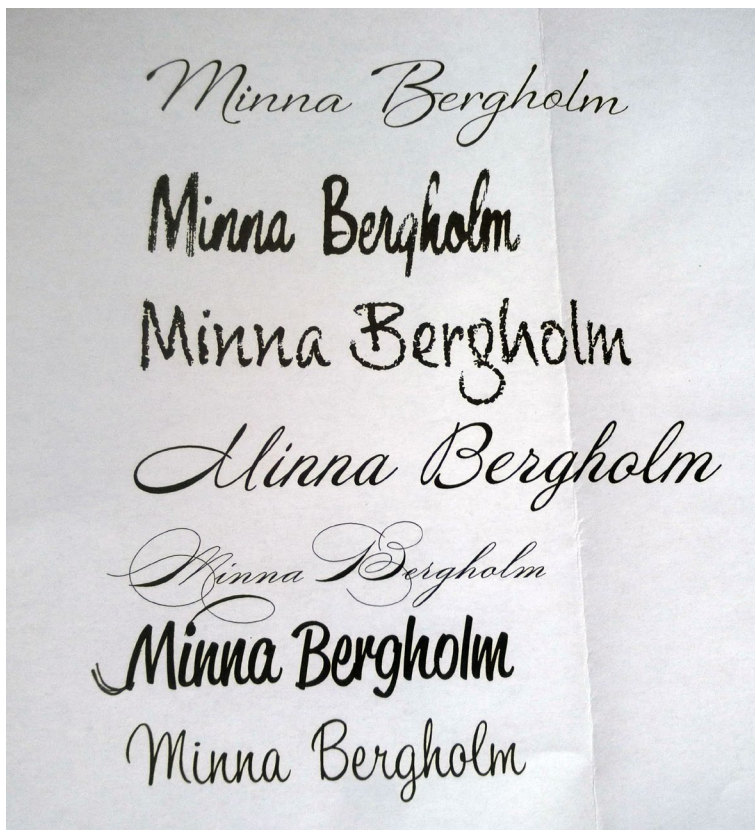 Minna Bergholm
Minna Bergholm
Minna Bergholm
Minna Bergholm
Minna Bergholm
Minna Bergholm
Minna Bergholm